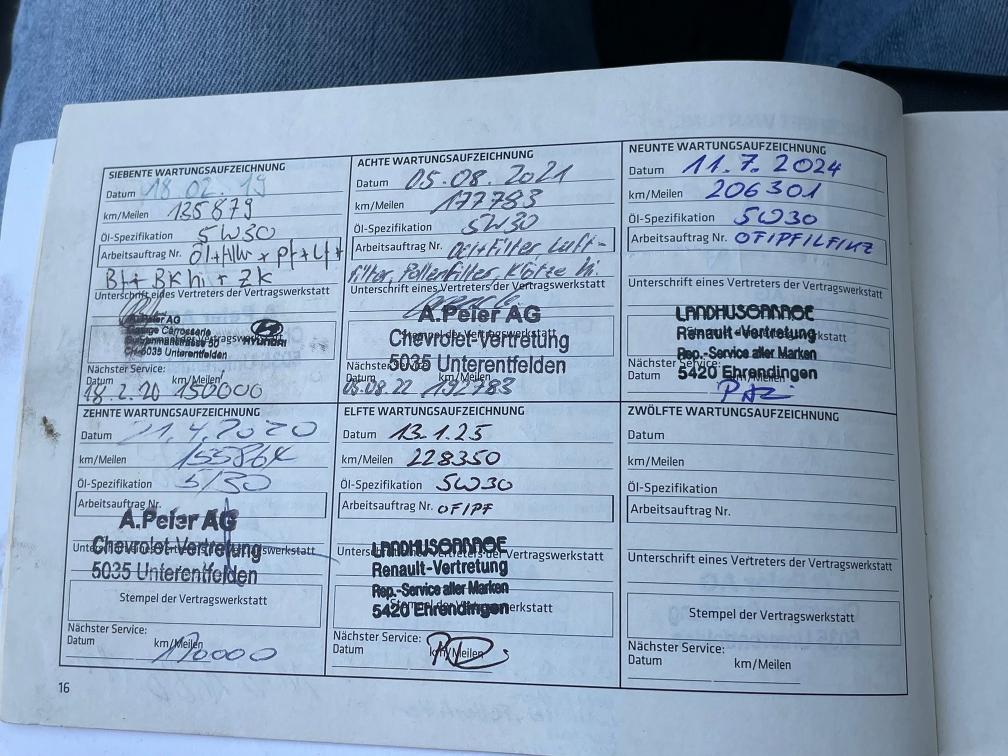 SIEBENTE WARTUNGSAUFZEICHNUNG
Datum 18.02.19
km/Meilen 135879
Öl-Spezifikation 5W30
Arbeitsauftrag Nr. Öl+
Bf+ BK hi + ZK
Unterschrift eines Vertreters der Vertragswerkstatt
A.Peier AG
Garage Carrosserie
CH-5035 Unterentfelden
HYUNDAI
Nächster Service:
Datum km/Meilen
18.2.20 150000
ACHTE WARTUNGSAUFZEICHNUNG
Datum 05.08.2021
km/Meilen 177783
Öl-Spezifikation 5W30
Arbeitsauftrag Nr. Öl+Filter Luft-
filter, Pollenfilter, Klötze hi.
Unterschrift eines Vertreters der Vertragswerkstatt
A.Peier AG
Stempel der Vertragswerkstatt
Chevrolet-Vertretung
5035 Unterentfelden
Nächster Service:
Datum km/Meilen
05.08.22 192783
NEUNTE WARTUNGSAUFZEICHNUNG
Datum 11.7.2024
km/Meilen 206301
Öl-Spezifikation 5W30
Arbeitsauftrag Nr.
Unterschrift eines Vertreters der Vertragswerkstatt
LANDHUSGARAGE
Renault-Vertretung
Rep.-Service aller Marken
5420 Ehrendingen
Nächster Service:
Datum
ZEHNTE WARTUNGSAUFZEICHNUNG
Datum 21.4.2020
km/Meilen
Öl-Spezifikation 5/30
Arbeitsauftrag Nr.
A.Peier AG
Chevrolet-Vertretung
5035 Unterentfelden
Stempel der Vertragswerkstatt
Nächster Service:
Datum km/Meilen
170000
ELFTE WARTUNGSAUFZEICHNUNG
Datum 13.1.25
km/Meilen 228350
Öl-Spezifikation 5W30
Arbeitsauftrag Nr. OFIPF
Unterschrift eines Vertreters der Vertragswerkstatt
LANDHUSGARAGE
Renault-Vertretung
Rep.-Service aller Marken
5420 Ehrendingen
Nächster Service:
Datum km/Meilen
ZWÖLFTE WARTUNGSAUFZEICHNUNG
Datum
km/Meilen
Öl-Spezifikation
Arbeitsauftrag Nr.
Unterschrift eines Vertreters der Vertragswerkstatt
Stempel der Vertragswerkstatt
Nächster Service:
Datum km/Meilen
16